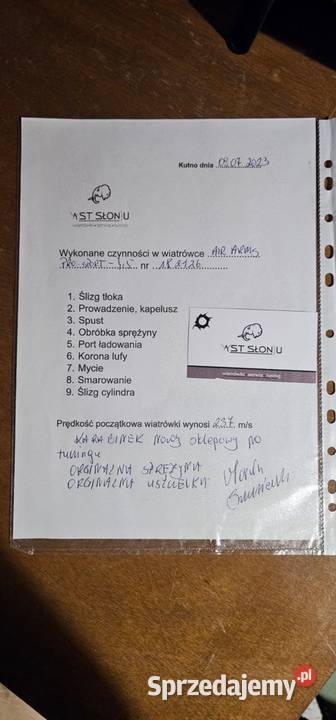 Kutno dnia 09.07.2023
AST SŁONIU
wiatrówki • serwis • tuning
Wykonane czynności w wiatrówce AIR ARMS
PRO SPORT - 4,5 nr 188126
1. Ślizg tłoka
2. Prowadzenie, kapelusz
3. Spust
4. Obróbka sprężyny
5. Port ładowania
6. Korona lufy
7. Mycie
8. Smarowanie
9. Ślizg cylindra
AST SŁONIU
wiatrówki • serwis • tuning
Prędkość początkowa wiatrówki wynosi 237 m/s
KARABINEK NOWY sklepowy po
tuningu
ORGINALNA SPRĘŻYNA
ORGINALNA USZCZELKA
Sprzedajemy.pl